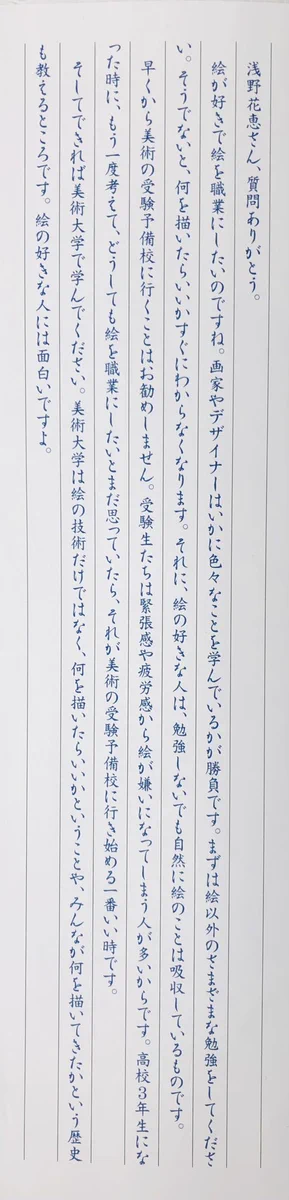 浅野花恵さん、質問ありがとう。
絵が好きで絵を職業にしたいのですね。画家やデザイナーはいかに色々なことを学んでいるかが勝負です。まずは絵以外のさまざまな勉強をしてくださ
い。そうでないと、何を描いたらいいかすぐにわからなくなります。それに、絵の好きな人は、勉強しないでも自然に絵のことは吸収しているものです。
早くから美術の受験予備校に行くことはお勧めしません。受験生たちは緊張感や疲労感から絵が嫌いになってしまう人が多いからです。高校3年生にな
った時に、もう一度考えて、どうしても絵を職業にしたいとまだ思っていたら、それが美術の受験予備校に行き始める一番いい時です。
そしてできれば美術大学で学んでください。美術大学は絵の技術だけではなく、何を描いたらいいかということや、みんなが何を描いてきたかという歴史
も教えるところです。絵の好きな人には面白いですよ。